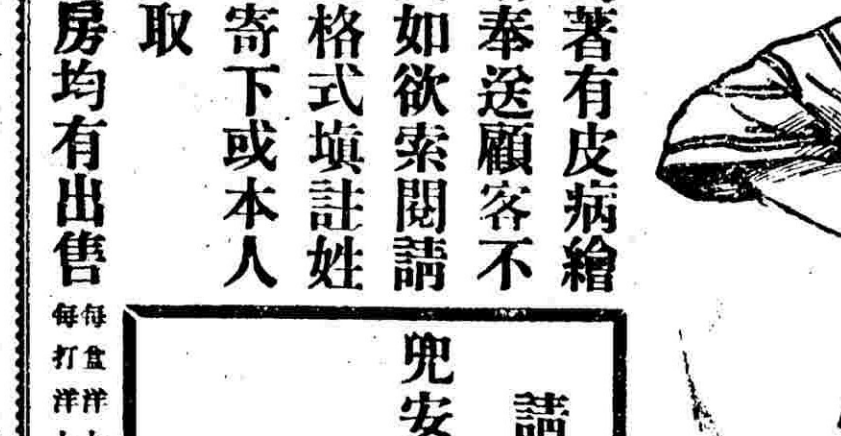 著有皮病繪
奉送顧客不
如欲索閱請
格式塡註姓
寄下或本人
取
房均有出售
每盒洋
每打洋
請
兜安